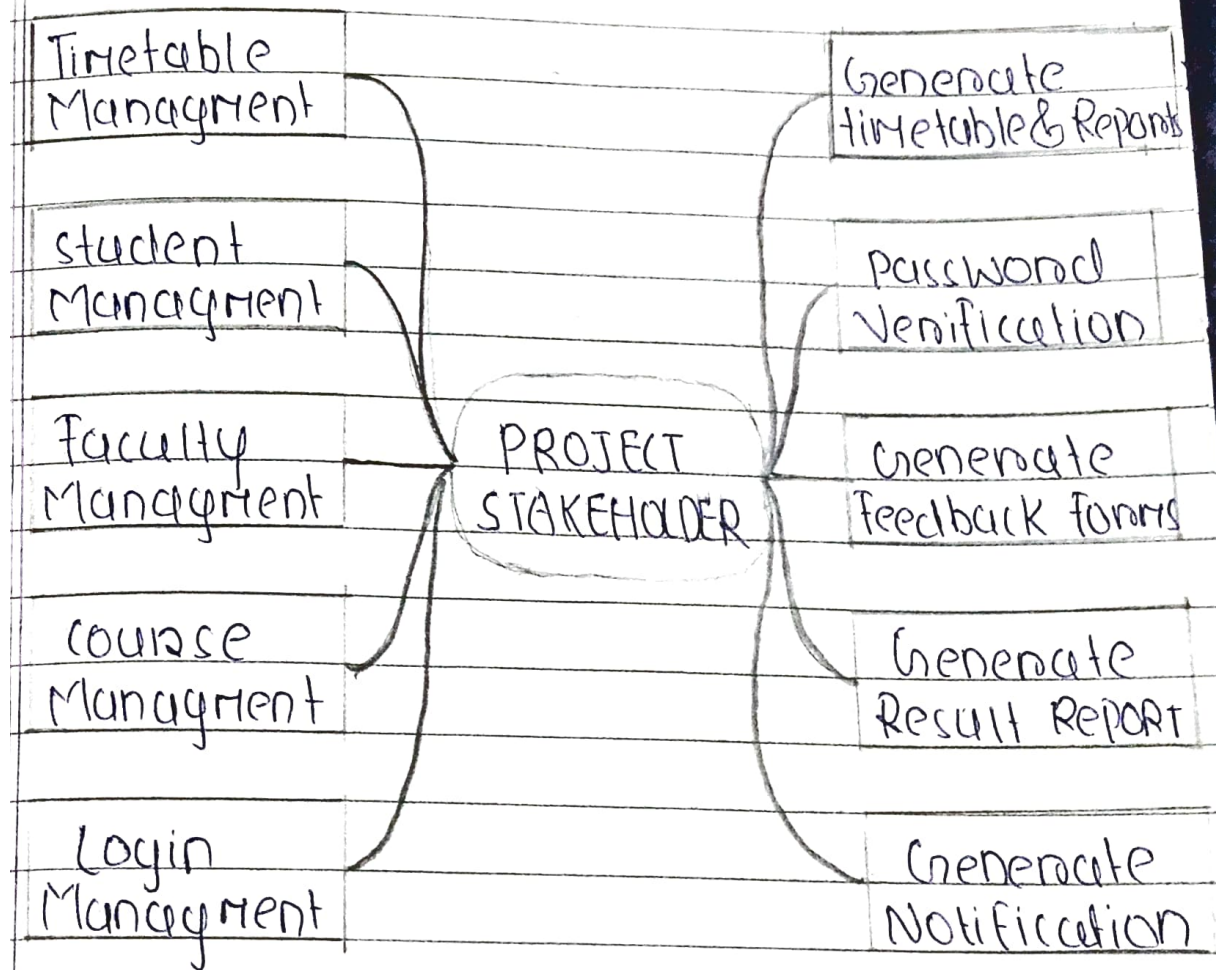 Timetable
Managment
Student
Managment
Faculty
Managment
Course
Managment
Login
Managment
PROJECT
STAKEHOLDER
Generate
timetable & Reports
Password
Verification
Generate
Feedback Forms
Generate
Result Report
Generate
Notification